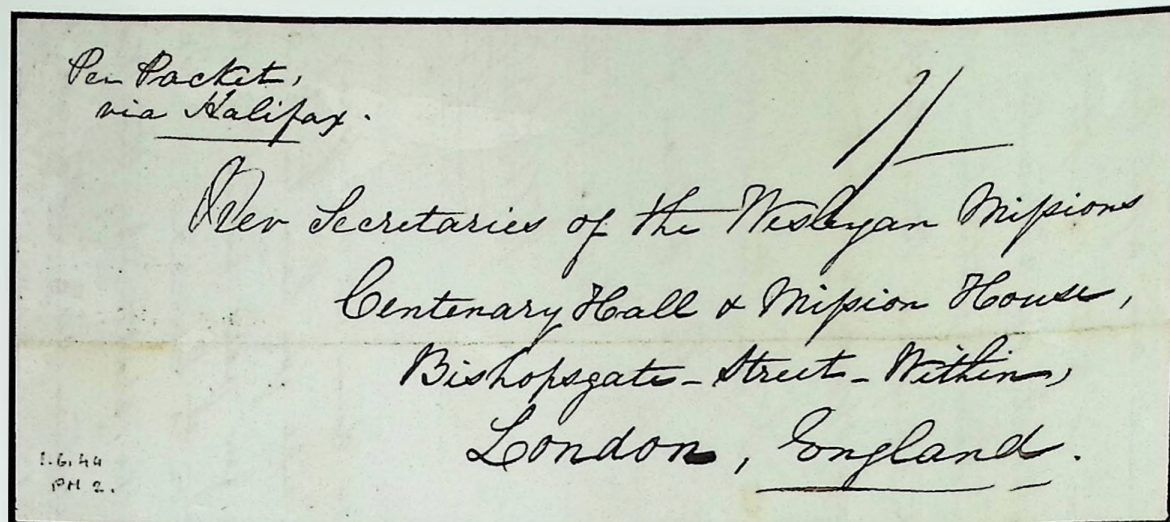 Per Packet,
via Halifax.
1/-
Rev Secretaries of the Wesleyan Missions
Centenary Hall & Mission House,
Bishopsgate-Street-Within,
London, England.
1.6.44
PM 2.